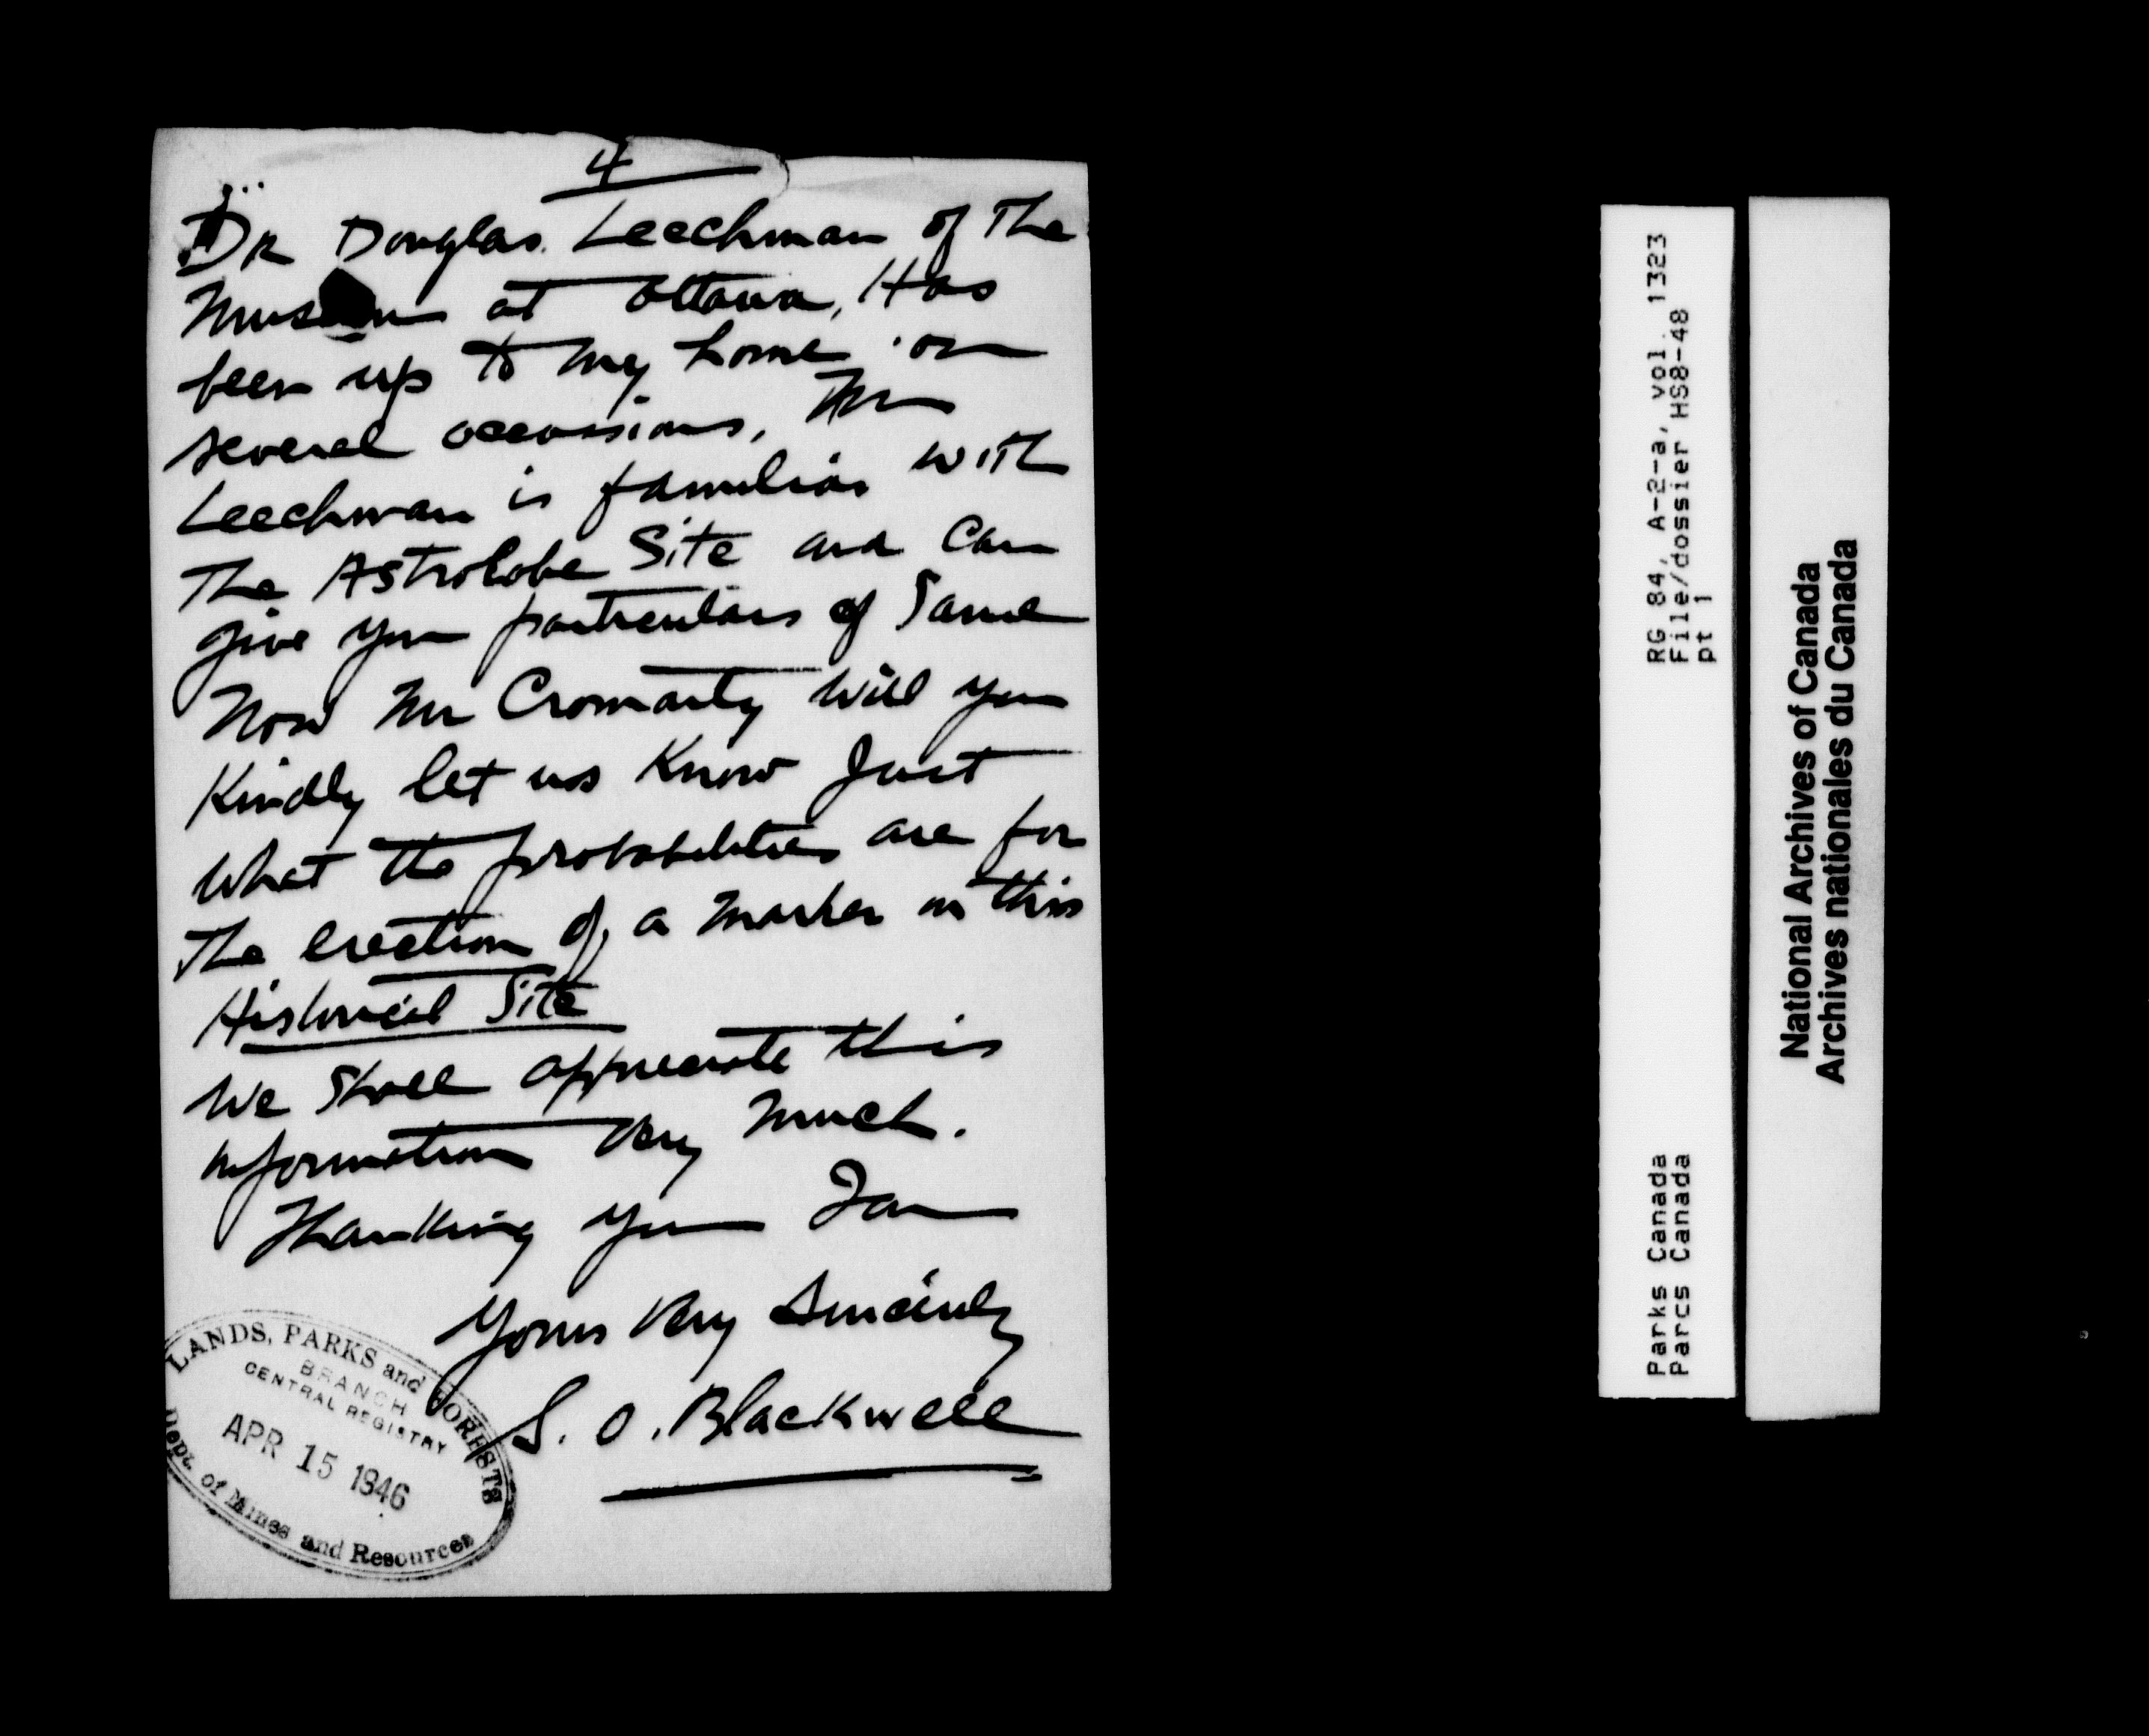 4
Dr Douglas Leechman of The
Museum at Ottawa, Has
been up to my home on
several occasions, Mr
Leechman is familiar with
The Astrolobe Site and Can
give you particulars of Same
Now Mr Cromarty Will you
Kindly let us Know Just
What the probabilities are for
The erection of a marker on this
Historical Site
We Shall appreciate this
information Very Much.
Thanking you I am
Yours Very Sincerely
S. O. Blackwell
LANDS, PARKS and FORESTS
BRANCH
CENTRAL REGISTRY
APR 15 1946
Dept. of Mines and Resources
RG 84, A-2-a, vol. 1323
File/dossier HS8-48
pt 1
Parks Canada
Parcs Canada
National Archives of Canada
Archives nationales du Canada